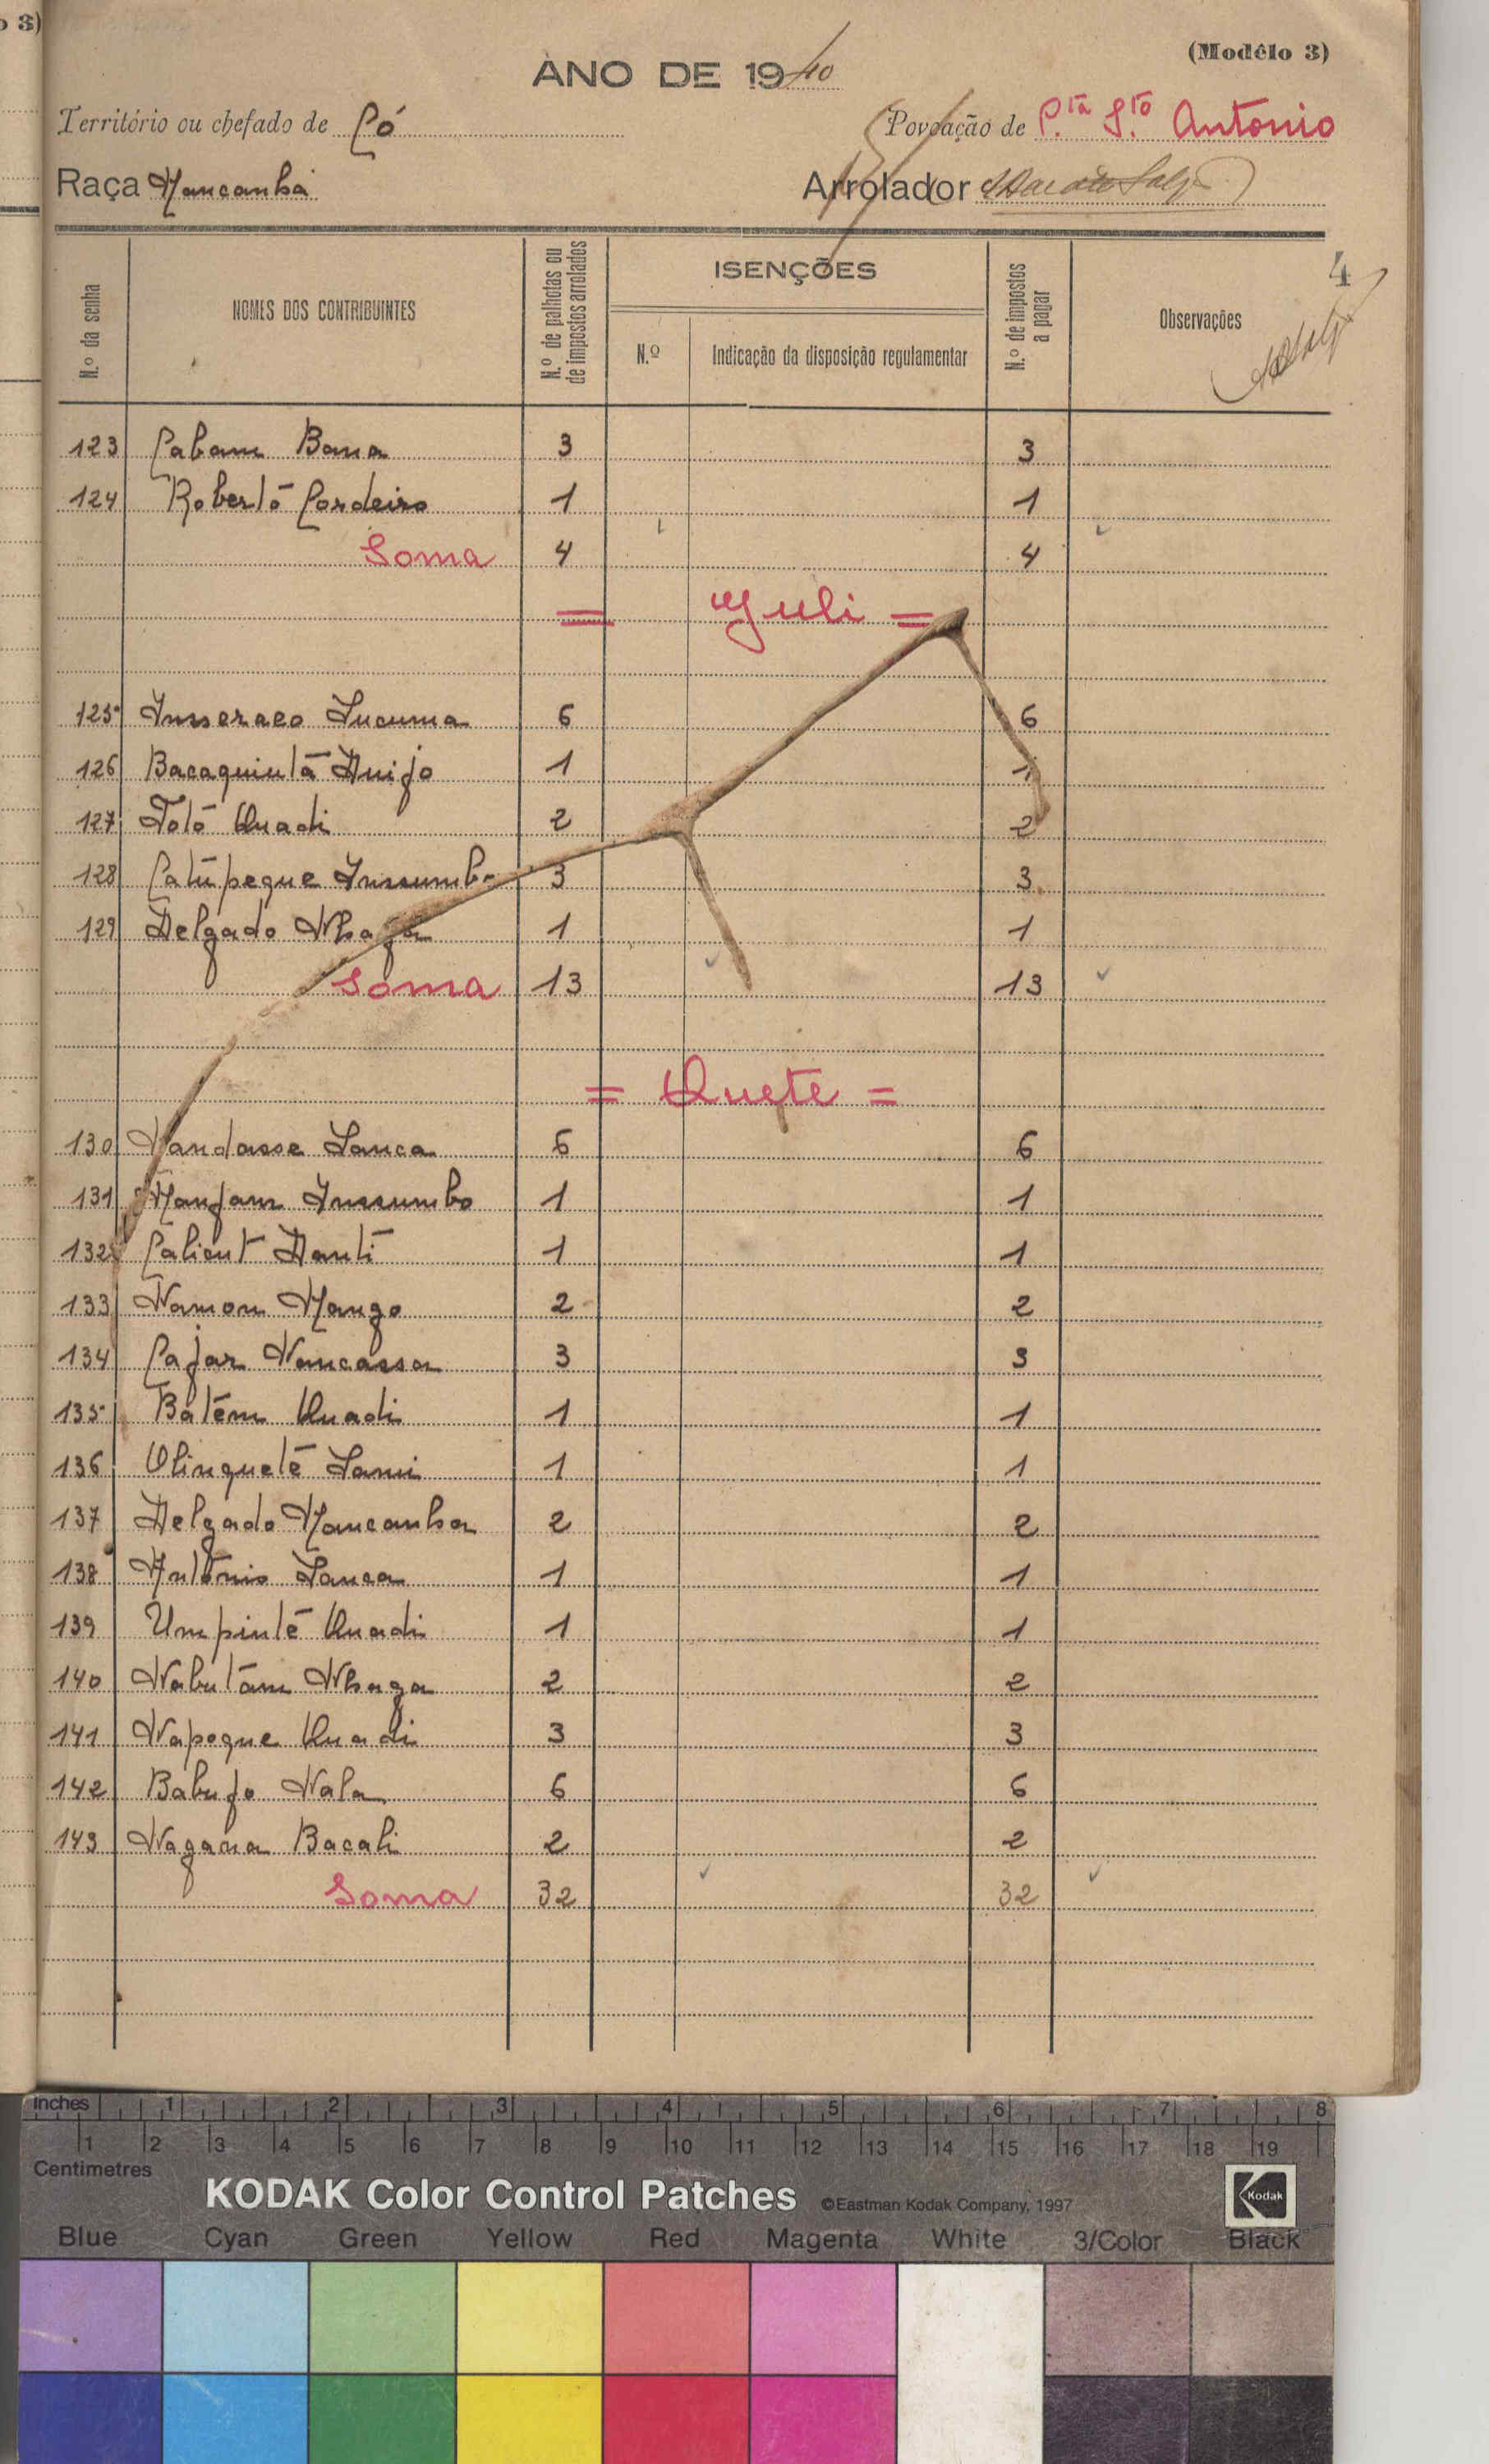 o 3)
(Modêlo 3)
ANO DE 1940
Território ou chefado de Có
Povoação de P.ta S.to Antonio
Raça Mancanha
Arrolador
4
N.º da senha
NOMES DOS CONTRIBUINTES
N.º de palhotas ou de impostos arrolados
ISENÇÕES
N.º
Indicação da disposição regulamentar
N.º de impostos a pagar
Observações
123 Cabam Bana 3 3
124 Robertō Cordeiro 1 1
Soma 4 4
= Yuli =
125 6 6
126 1 1
127 Totō Quadi 2 2
128 Catūpeque Inssumbo 3 3
129 Delgado Nhaga 1 1
Soma 13 13
= Quete =
130 Nandasse Sanca 6 6
131 Manjam Inssumbo 1 1
132 1 1
133 Namom Mango 2 2
134 Cajar Nancassa 3 3
135 Batēm Quadi 1 1
136 Olinquetē Sami 1 1
137 Delgado Mancanha 2 2
138 Antōnio Sanca 1 1
139 Umpintē Quadi 1 1
140 Nabutām Nhaga 2 2
141 Napeque Quadi 3 3
142 Babujo Nala 6 6
143 Nagana Bacali 2 2
Soma 32 32
Inches 1 2 3 4 5 6 7 8
1 2 3 4 5 6 7 8 9 10 11 12 13 14 15 16 17 18 19
Centimetres
KODAK Color Control Patches ©Eastman Kodak Company, 1997 Kodak
Blue Cyan Green Yellow Red Magenta White 3/Color Black